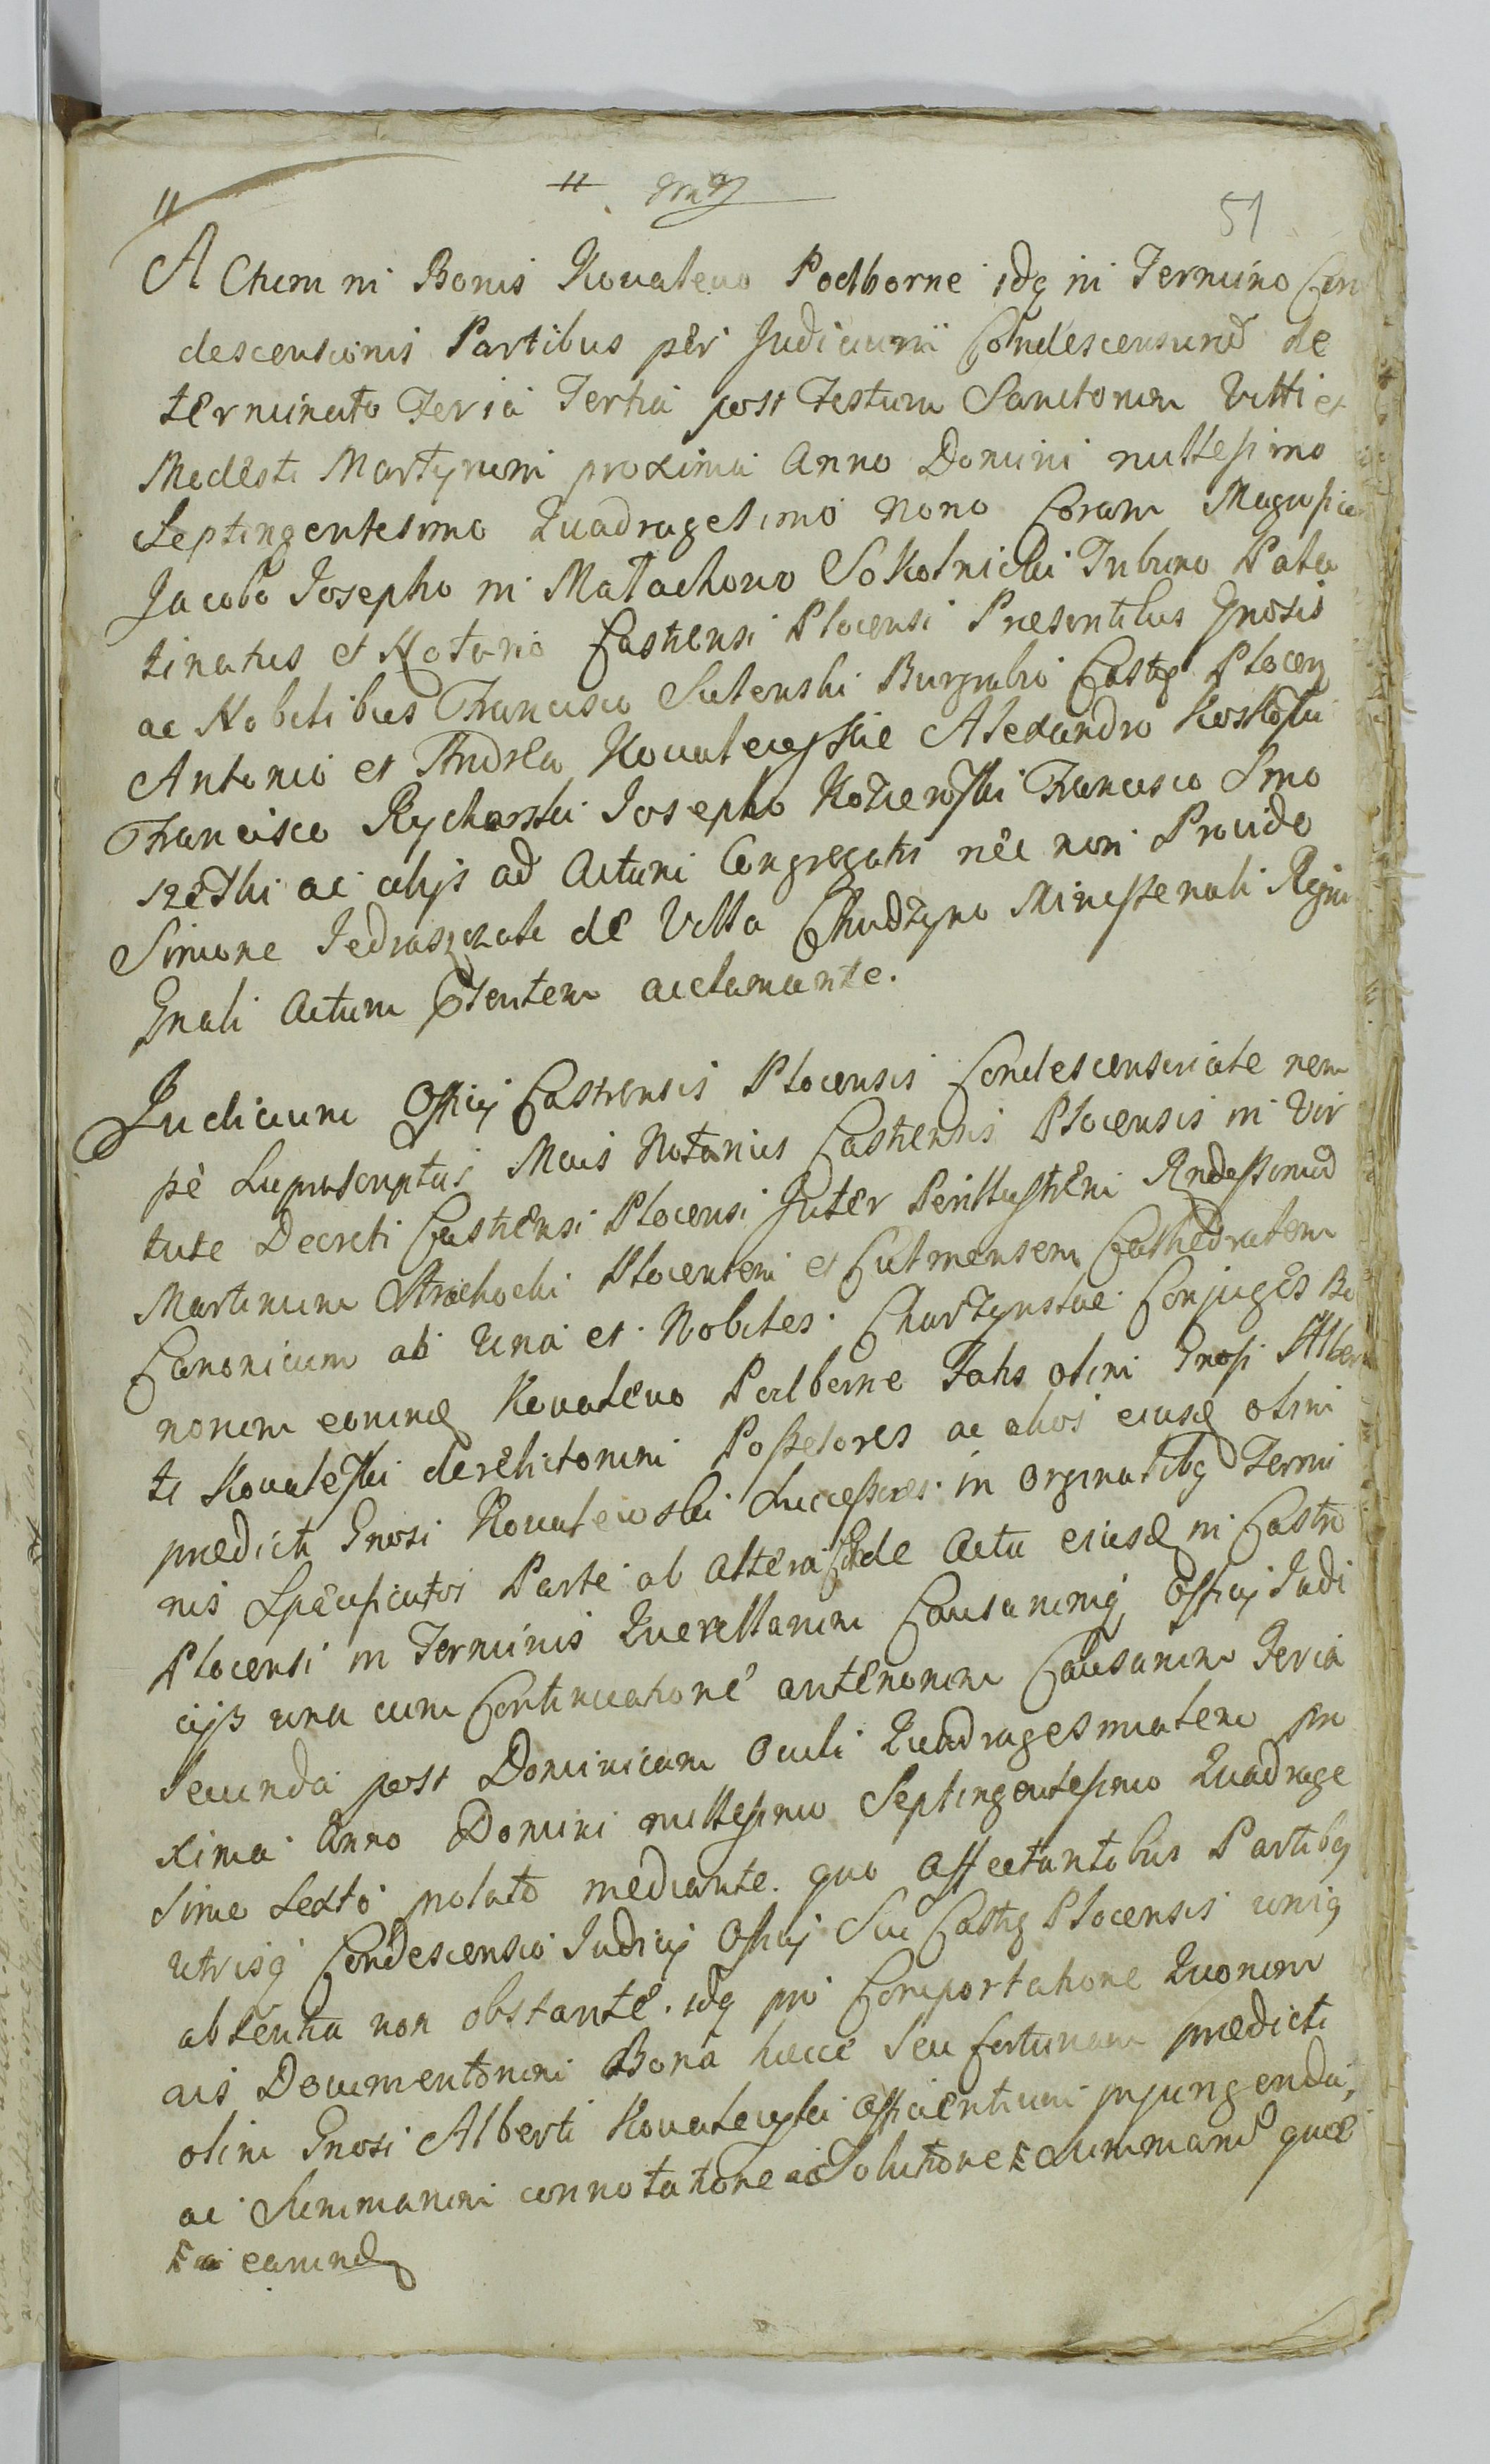 51
Actum in Bonis Kowalewo Podborne idq in Termino Con
descensionis Partibus per Judicium Condescensund de
terminato Feria Tertia post Festum Sanctorum Vitti et
Modesti Martyrum proxima Anno Domini millesimo
Septingentesimo Quadragesimo nono Coram Magnifico
Jacobo Josepho in Małachowo Sokolnicki Tribuno Pala
tinatus et Notario Castrensi Plocensi Presentibus Gnosis
ac Nobilibus Francisco Sulenski Burgrabio Castrg Plocen
Antonio et Andrea Kowalewskie Alexandro
Francisco Rycharski Josepho Francisco Smo
ac alijs ad Actum Congregatis nec non Provido
Simone Jedraszczak de Villa Chudzyno Ministeriali Regni
Gnali Actum Pntem aclamante.
Judicium Officij Castrensis Plocensis Condescensoriale nem
pe Suprascriptus Maius Notarius Castrensis Plocensis in Vir
tute Decreti Castrensi Plocensi Inter Perillustrem Rndissimud
Martinum Strachocki Plocensem et Culmensem Cathedralem
Canonicum ab una et Nobiles Charzynskie Conjuges Bo
norum eorumd Kowalewo Podborne Fatis olim Gnosi Alber
ti Kowalewski derelictorum Possessores ac alios eiusd olim
prædicti Gnosi Kowalewski Successores in Originalibg Termi
nis Specificatos Parte ab altera de Actu eiusd in Castro
Plocensi in Terminis Querellarum Causarumq Officij Judi
cijs una cum Continuatione anteriorum Causarum Feria
Secunda post Dominicam Oculi Quadragesimalem pro
xima Anno Domini millesimo Septingentesimo Quadrage
simo Sexto prolato mediante quo affectantibus Partibg
utrisq Condescensio Judicij Officij Sui Castrg Plocensis unig
absentia non obstante idq pro Comportatione Quorum
vis Documentorum Bona hæcce seu fortunam prædicti
olim Gnosi Alberti Kowalewski afficientium injungenda,
ac Summarum connotatione ac Solutione Summarud quæ
ac earumd